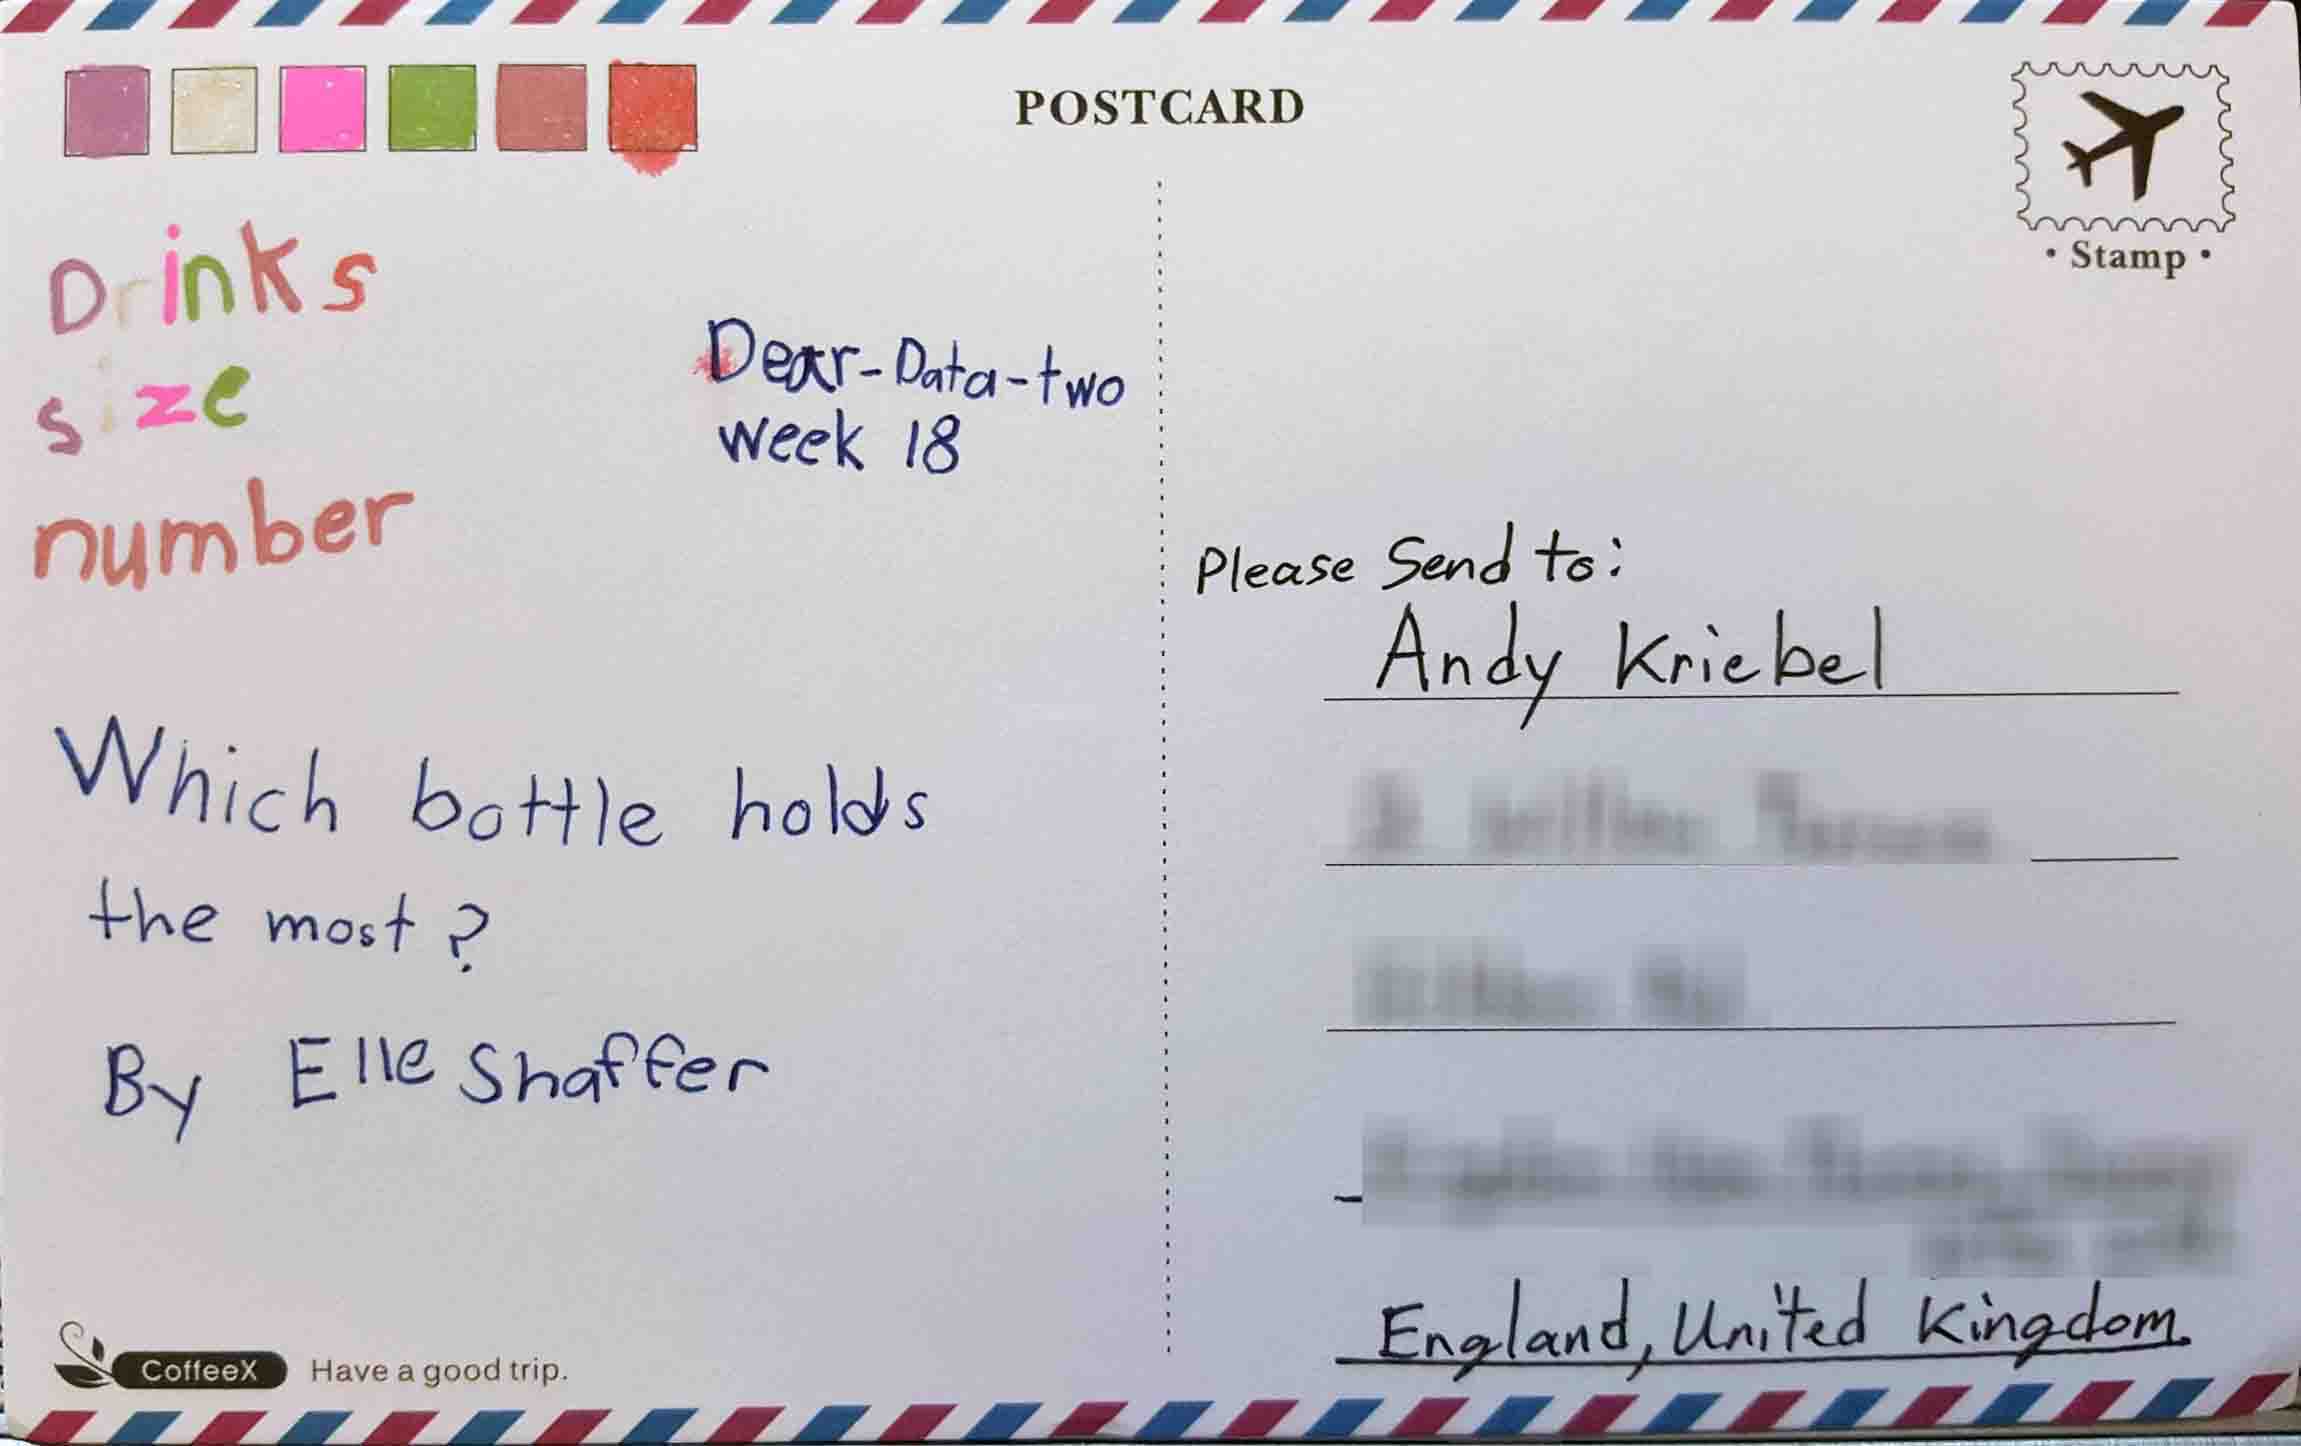 POSTCARD
• Stamp •
Drinks
size
number
Dear-Data-two
week 18
Which bottle holds
the most?
By Elle Shaffer
CoffeeX Have a good trip.
Please Send to:
Andy Kriebel
England, United Kingdom